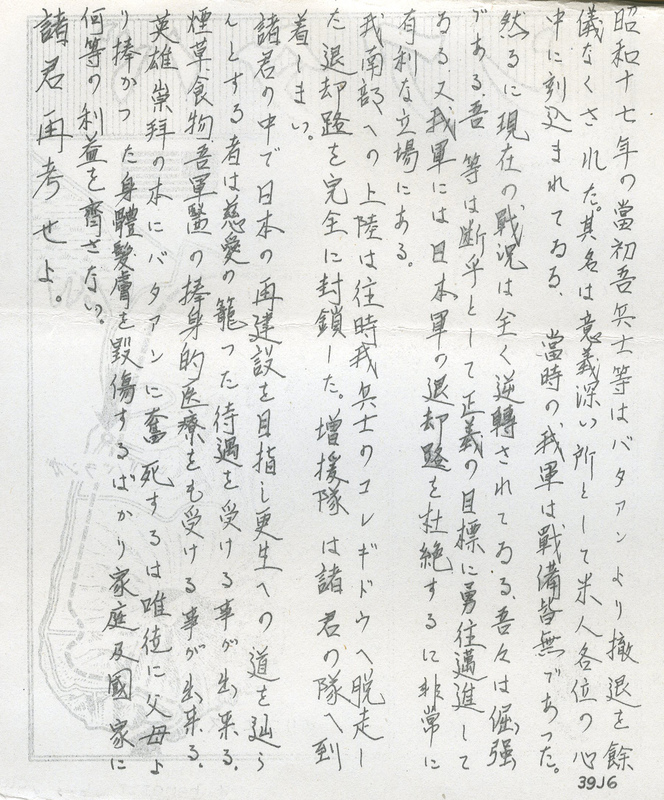 昭和十七年の當初吾兵士等はバタアンより撤退を餘
儀なくされた。其名は意義深い所として米人各位の心
中に刻込まれてゐる、當時の我軍は戰備皆無であつた。
然るに現在の戰況は全く逆轉されてゐる、吾々は倔強
である、吾等は断乎として正義の目標に勇往邁進して
ゐる、又我軍には日本軍の退却路を杜絶するに非常に
有利な立場にある。
我南部への上陸は往時我兵士のコレギドウへ脱走し
た退却路を完全に封鎖した。増援隊は諸君の隊へ到
着しまい。
諸君の中で日本の再建設を目指し更生への道を辿ら
んとする者は慈愛の籠つた待遇を受ける事が出来る。
煙草食物吾軍醫の捧身的医療をも受ける事が出来る。
英雄崇拜の本にバタアンに奮死するは唯徒に父母よ
り捧かつた身體髮膚を毀傷するばかり家庭及國家に
何等の利益を齎さない。
諸君再考せよ。
39J6